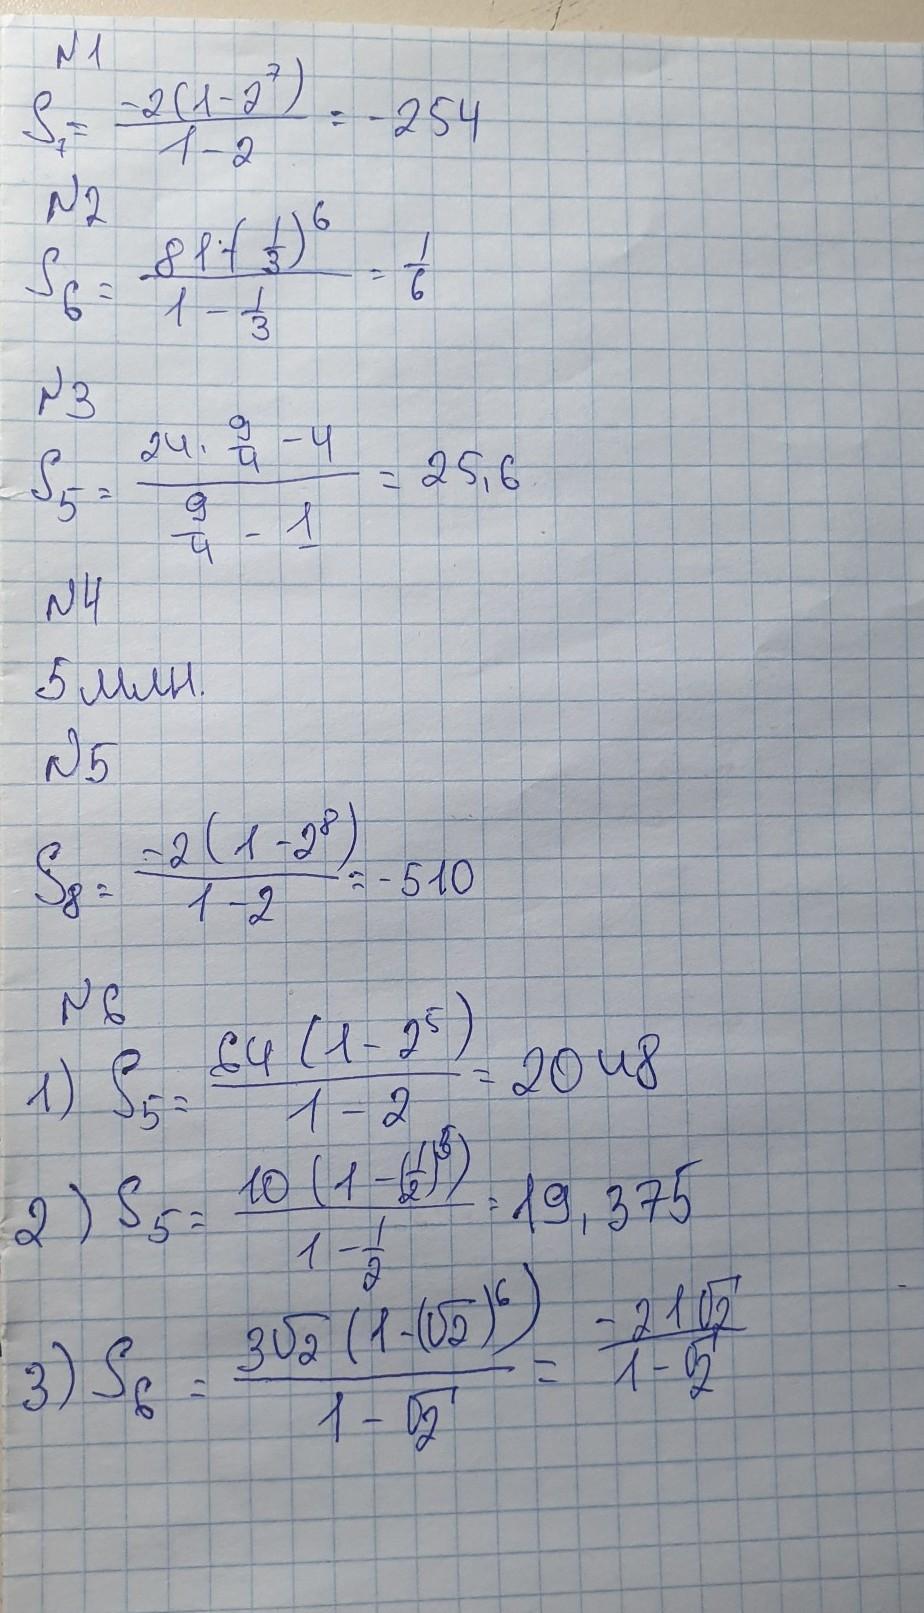 N1
S₇ = (-2(1-2⁷))/(1-2) = -254
N2
S₆ = (81·(1/3)⁶)/(1-1/3) = 1/6
N3
S₅ = (24·9/4-4)/(9/4-1) = 25,6
N4
5 млн.
N5
S₈ = (-2(1-2⁸))/(1-2) = -510
N6
1) S₅ = (64(1-2⁵))/(1-2) = 2048
2) S₅ = (10(1-(1/2)⁵))/(1-1/2) = 19,375
3) S₆ = (3√2(1-(√2)⁶))/(1-√2) = (-21√2)/(1-√2)